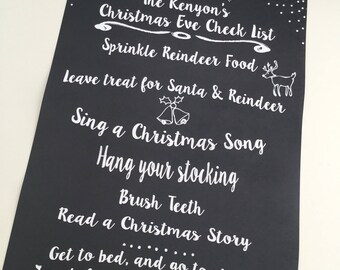 The Kenyon's
Christmas Eve Check List
Sprinkle Reindeer Food
Leave treat for Santa & Reindeer
Sing a Christmas Song
Hang your stocking
Brush Teeth
Read a Christmas Story
Get to bed, and go to